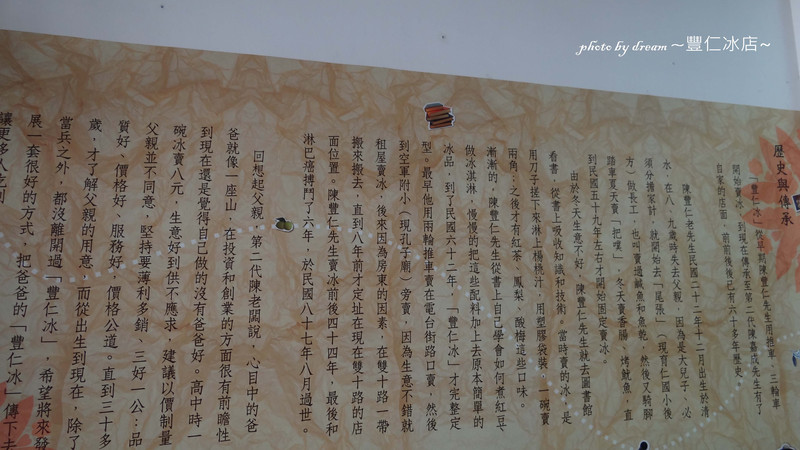 photo by dream ～豐仁冰店~
歷史與傳承
「豐仁冰」從早期陳豐仁先生用推車、三輪車
開始賣冰，到現在傳承至第二代陳嘉成先生有了
自家的店面。前前後後已有六十多年歷史。
陳豐仁老先生民國二十二年十二月出生於清
水，在八、九歲時失去父親，因為是大兒子，必
須分擔家計，就開始去「尾張」（現育仁國小後
方）做長工，也叫賣過鹹魚和魚乾，然後又騎腳
踏車夏天賣「把噗」，冬天賣香腸、烤魷魚，直
到民國五十九年左右才開始固定賣冰。
由於冬天生意不好，陳豐仁先生就去圖書館
看書，從書上吸收知識和技術，當時賣的冰，是
用刀去搓下來淋上楊桃汁，用塑膠袋裝，一碗賣
兩角；之後才有紅茶、鳳梨、酸梅這些口味。
漸漸的，陳豐仁先生從書上自己學會如何煮紅豆、
做冰淇淋，慢慢的把這些配料加上去原本簡單的
冰品，到了民國六十二年，「豐仁冰」才完整定
型。最早他用兩輪推車賣在電台街路口賣，然後
到空軍附小（現孔子廟）旁賣，因為生意不錯就
租屋賣冰，後來因為房東的因素，在雙十路一帶
搬來搬去，直到八年前才定址在現在雙十路的店
面位置。陳豐仁先生賣冰前後四十四年，最後和
淋巴癌搏鬥了六年，於民國八十七年八月過世。
回想起父親，第二代陳老闆說，心目中的爸
爸就像一座山，在投資和創業的方面很有前瞻性
到現在還是覺得自己做的沒有爸爸好。高中時一
碗冰賣八元，生意好到供不應求，建議以價制量
父親並不同意，堅持要薄利多銷、三好一公：品
質好、價格好、服務好，價格公道。直到三十多
歲，才了解父親的用意，而從出生到現在，除了
當兵之外，都沒離開過「豐仁冰」，希望將來發
展一套很好的方式，把爸爸的「豐仁冰」傳下去
讓更多人吃到